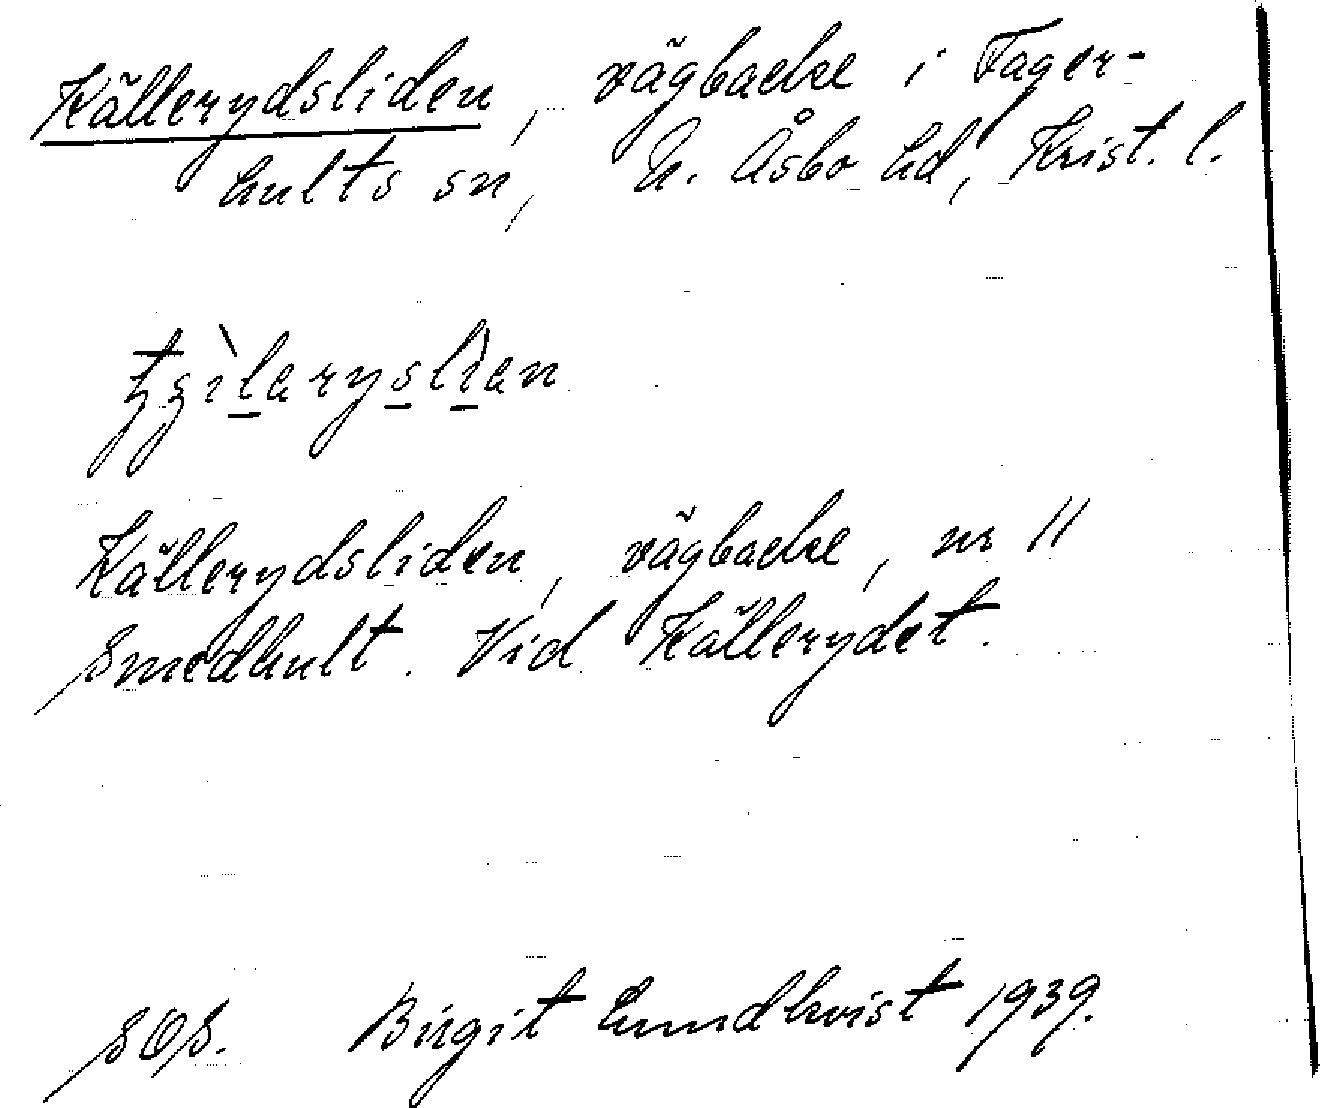 Källerydsliden, vägbacke i Fager-
hults sn, N. Åsbo hd, Krist. l.
Källerydsliden, vägbacke, nr 11
Smedhult. Vid Källerydet.
SOS. Birgit Lundkvist 1939.